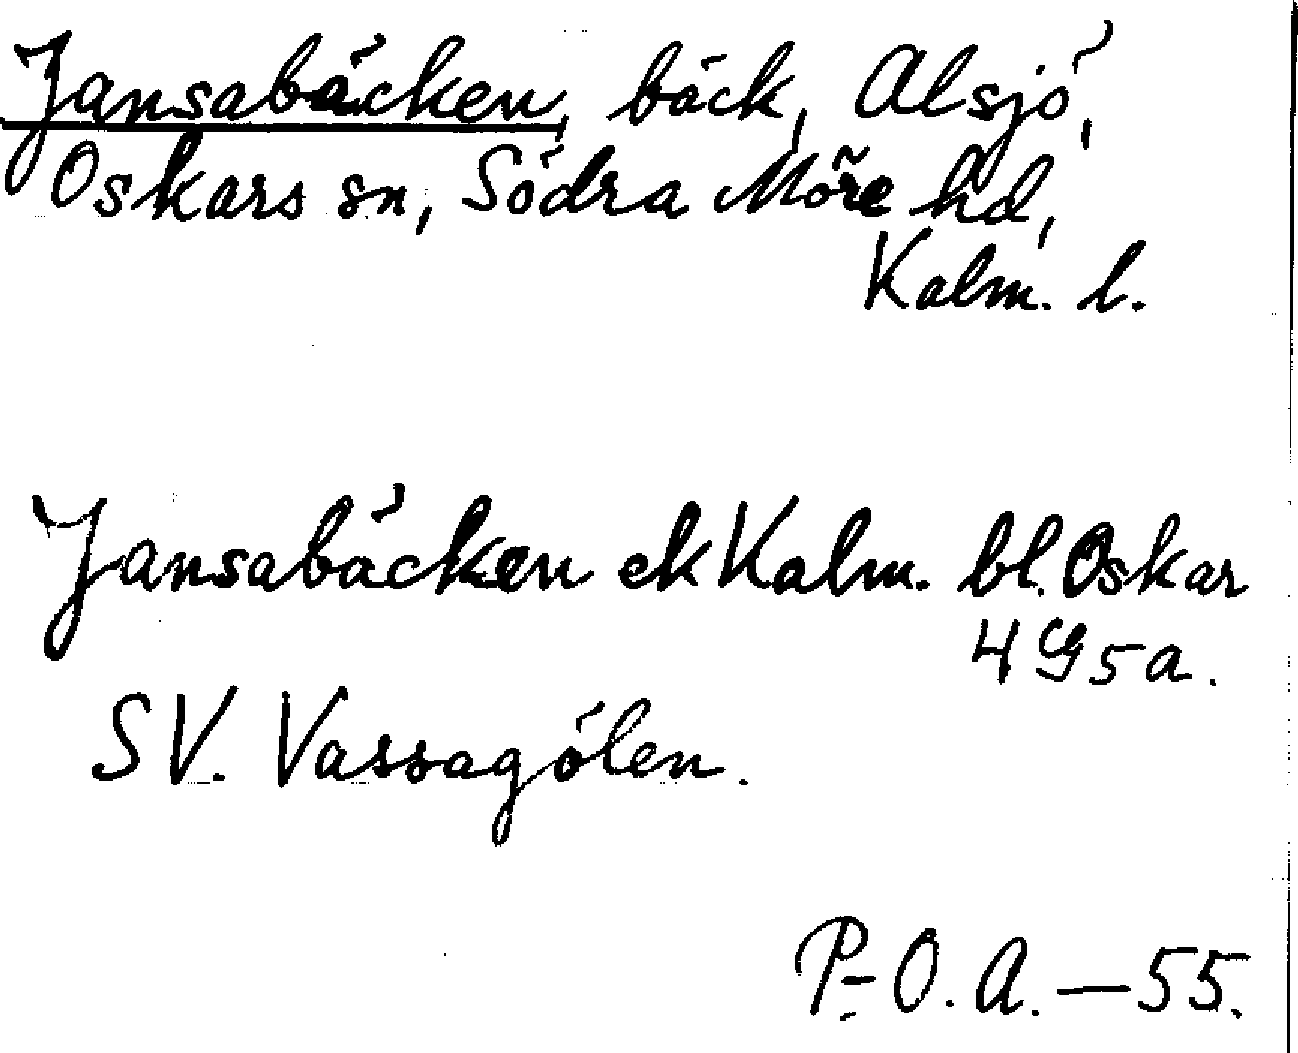 Jansabäcken, bäck, Alsjö,
Oskars sn, Södra Möre hd,
Kalm. l.
Jansabäcken ek Kalm. bl. Oskar
4 G 5 a.
SV. Vassagölen.
P.-O. A. — 55.